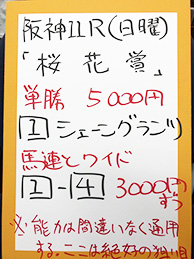 阪神11R(日曜)
「桜花賞」
単勝 5000円
1 シェーングランツ
馬連とワイド
1-4 3000円ずつ
※能力は間違いなく通用
する。ここは絶好の狙い目